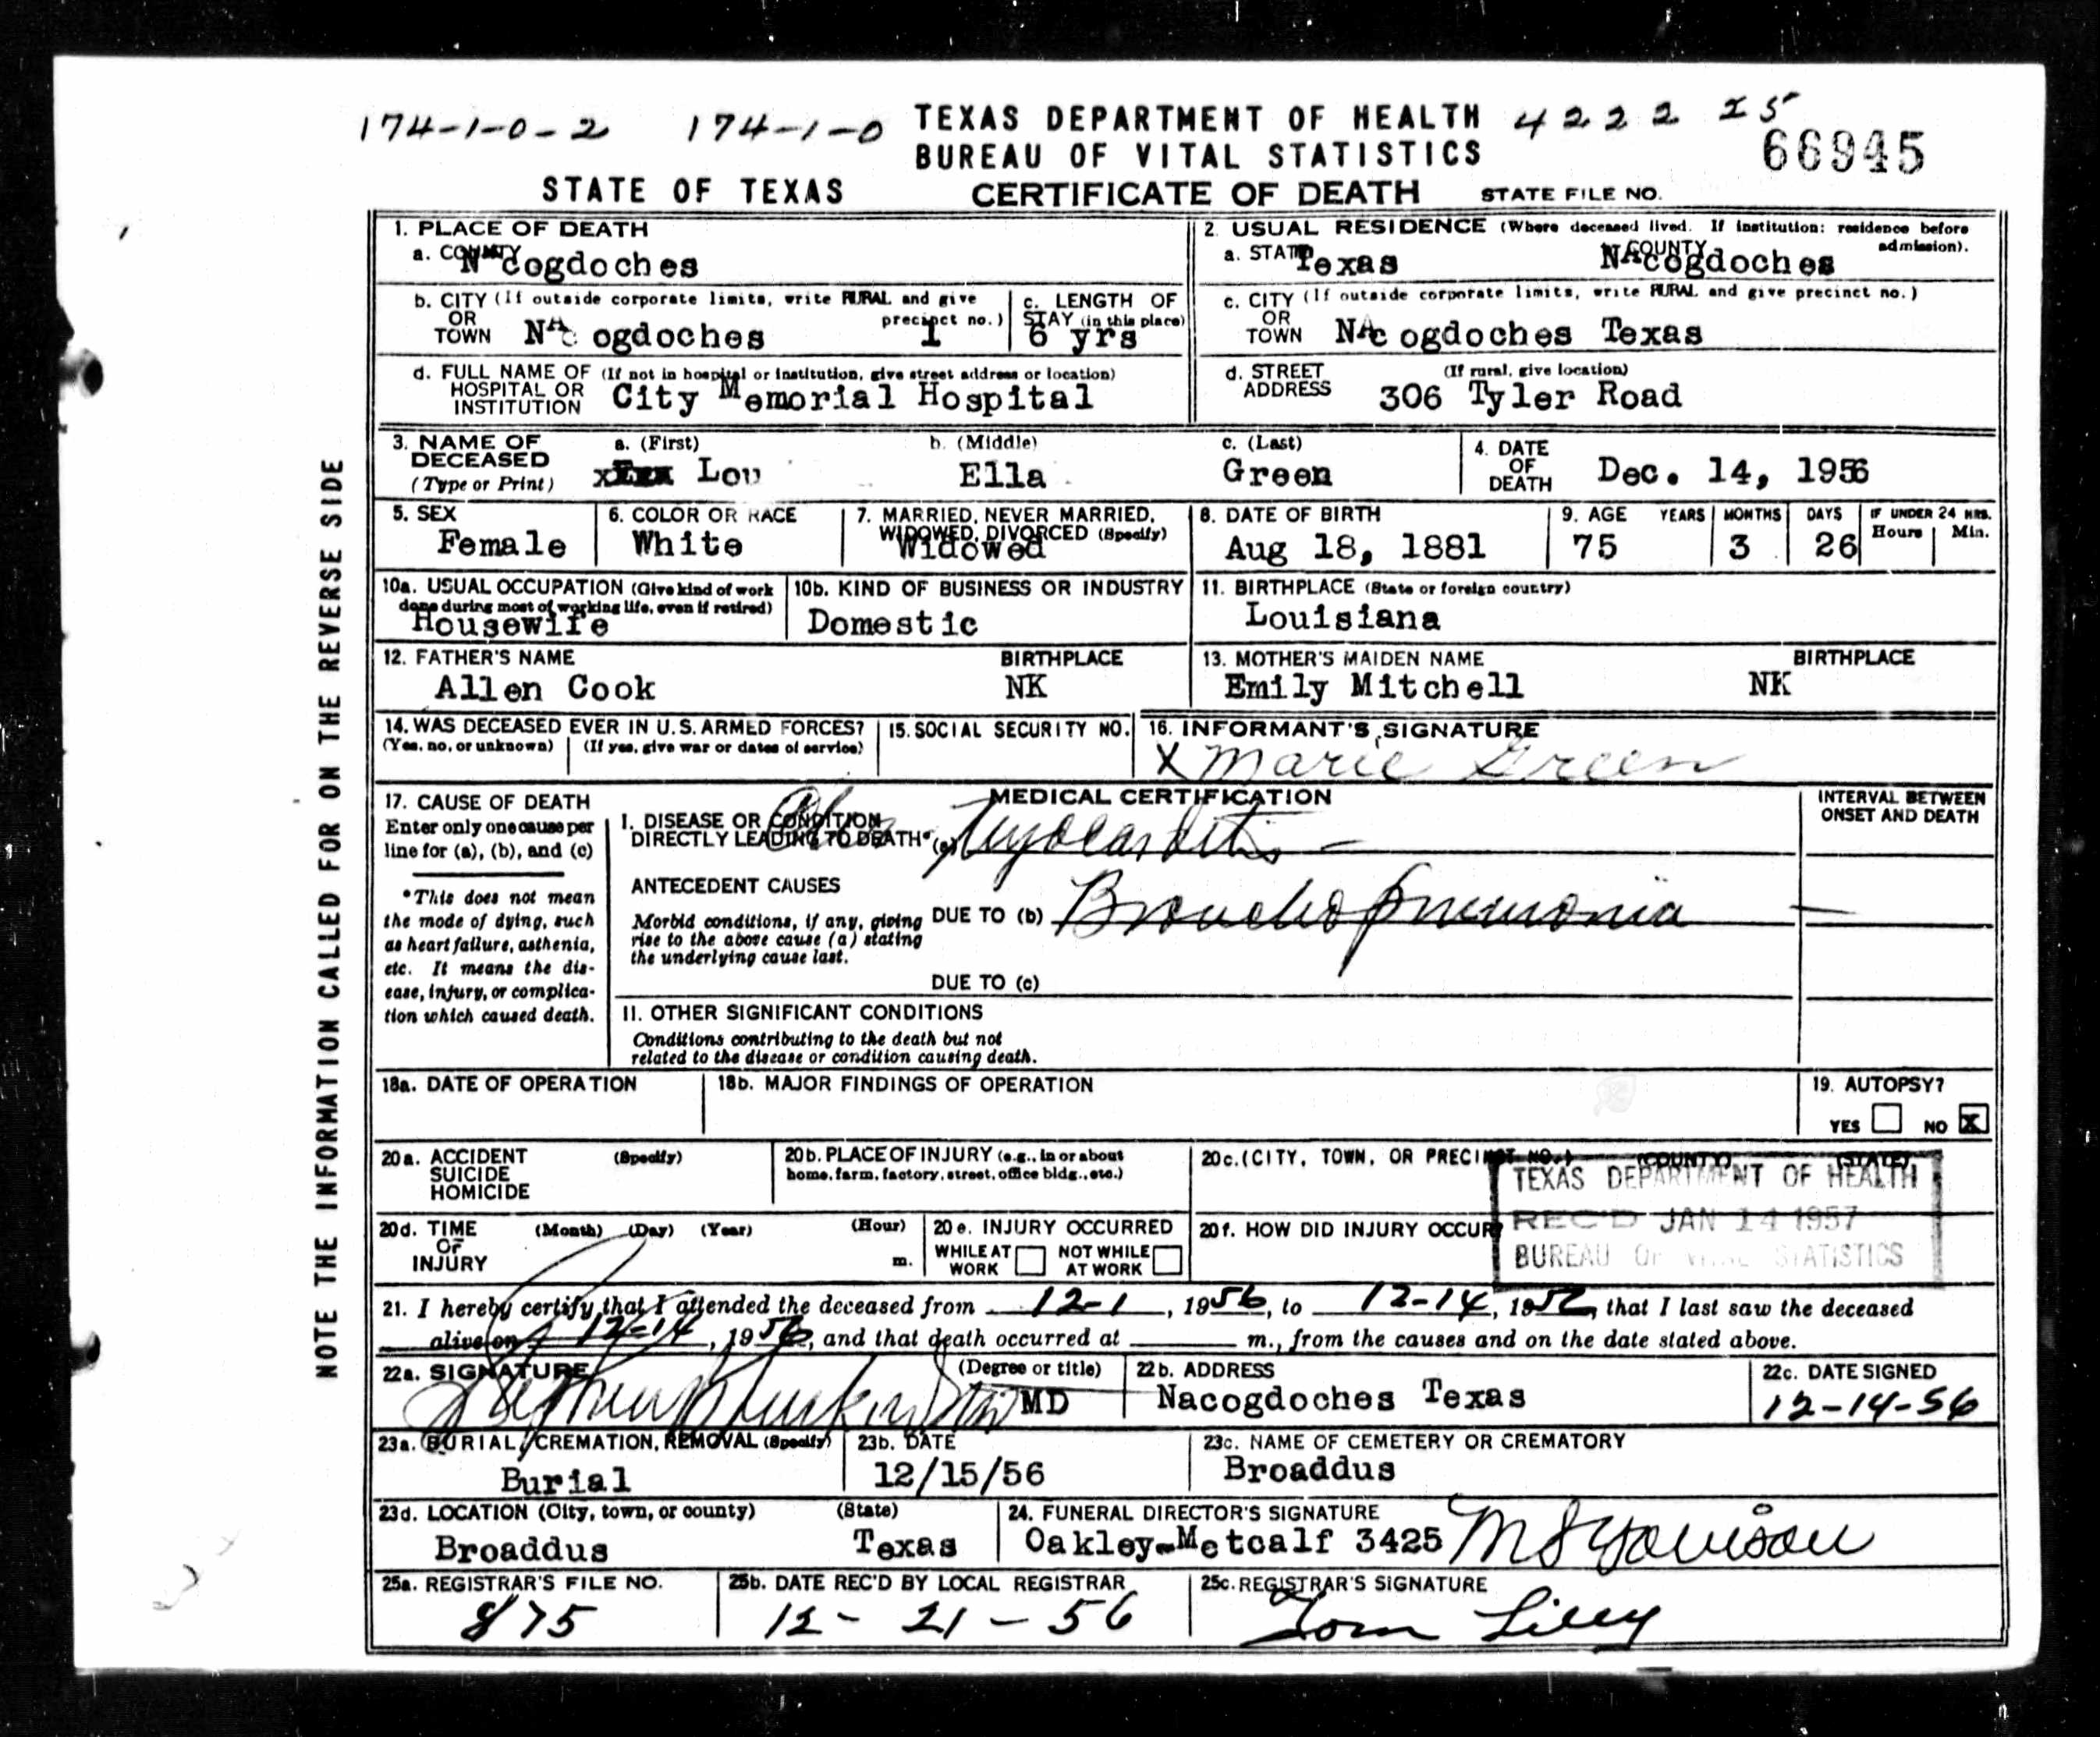 174-1-0-2 174-1-0 TEXAS DEPARTMENT OF HEALTH 4222 25
BUREAU OF VITAL STATISTICS 66945
STATE OF TEXAS CERTIFICATE OF DEATH STATE FILE NO.
NOTE THE INFORMATION CALLED FOR ON THE REVERSE SIDE
1. PLACE OF DEATH
a. COUNTY
Nacogdoches
2. USUAL RESIDENCE (Where deceased lived. If institution: residence before admission).
a. STATE Texas COUNTY Nacogdoches
b. CITY (If outside corporate limits, write RURAL and give precinct no.)
OR
TOWN Nacogdoches 1
c. LENGTH OF
STAY (in this place)
6 yrs
c. CITY (If outside corporate limits, write RURAL and give precinct no.)
OR
TOWN Nacogdoches Texas
d. FULL NAME OF (If not in hospital or institution, give street address or location)
HOSPITAL OR
INSTITUTION City Memorial Hospital
d. STREET (If rural, give location)
ADDRESS 306 Tyler Road
3. NAME OF DECEASED (Type or Print)
a. (First) b. (Middle) c. (Last)
Lou Ella Green
4. DATE OF DEATH Dec. 14, 1956
5. SEX
Female
6. COLOR OR RACE
White
7. MARRIED, NEVER MARRIED,
WIDOWED, DIVORCED (Specify)
Widowed
8. DATE OF BIRTH
Aug 18, 1881
9. AGE YEARS MONTHS DAYS IF UNDER 24 HRS.
Hours Min.
75 3 26
10a. USUAL OCCUPATION (Give kind of work
done during most of working life, even if retired)
Housewife
10b. KIND OF BUSINESS OR INDUSTRY
Domestic
11. BIRTHPLACE (State or foreign country)
Louisiana
12. FATHER'S NAME BIRTHPLACE
Allen Cook NK
13. MOTHER'S MAIDEN NAME BIRTHPLACE
Emily Mitchell NK
14. WAS DECEASED EVER IN U.S. ARMED FORCES?
(Yes, no, or unknown) (If yes, give war or dates of service)
15. SOCIAL SECURITY NO.
16. INFORMANT'S SIGNATURE
X Marie Green
17. CAUSE OF DEATH
Enter only one cause per
line for (a), (b), and (c)
*This does not mean
the mode of dying, such
as heart failure, asthenia,
etc. It means the dis-
ease, injury, or complica-
tion which caused death.
MEDICAL CERTIFICATION
INTERVAL BETWEEN
ONSET AND DEATH
I. DISEASE OR CONDITION
DIRECTLY LEADING TO DEATH* (a) Myocarditis
ANTECEDENT CAUSES
Morbid conditions, if any, giving
rise to the above cause (a) stating
the underlying cause last.
DUE TO (b) Bronchopneumonia
DUE TO (c)
II. OTHER SIGNIFICANT CONDITIONS
Conditions contributing to the death but not
related to the disease or condition causing death.
18a. DATE OF OPERATION
18b. MAJOR FINDINGS OF OPERATION
19. AUTOPSY?
YES NO X
20a. ACCIDENT (Specify)
SUICIDE
HOMICIDE
20b. PLACE OF INJURY (e.g., in or about
home, farm, factory, street, office bldg., etc.)
20c. (CITY, TOWN, OR PRECINCT NO.) (COUNTY) (STATE)
TEXAS DEPARTMENT OF HEALTH
REC'D JAN 14 1957
BUREAU OF VITAL STATISTICS
20d. TIME (Month) (Day) (Year) (Hour)
OF
INJURY m.
20e. INJURY OCCURRED
WHILE AT WORK NOT WHILE AT WORK
20f. HOW DID INJURY OCCUR
21. I hereby certify that I attended the deceased from 12-1, 1956, to 12-14, 1956, that I last saw the deceased
alive on 12-14, 1956, and that death occurred at m., from the causes and on the date stated above.
22a. SIGNATURE (Degree or title)
MD
22b. ADDRESS
Nacogdoches Texas
22c. DATE SIGNED
12-14-56
23a. BURIAL, CREMATION, REMOVAL (Specify)
Burial
23b. DATE
12/15/56
23c. NAME OF CEMETERY OR CREMATORY
Broaddus
23d. LOCATION (City, town, or county) (State)
Broaddus Texas
24. FUNERAL DIRECTOR'S SIGNATURE
Oakley-Metcalf 3425
25a. REGISTRAR'S FILE NO.
875
25b. DATE REC'D BY LOCAL REGISTRAR
12-21-56
25c. REGISTRAR'S SIGNATURE
Tom Lilly